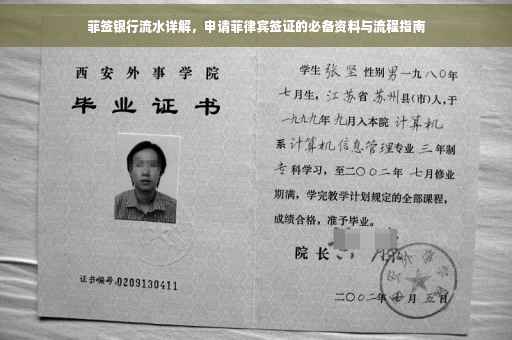 菲签银行流水详解，申请菲律宾签证的必备资料与流程指南
西安外事学院
毕业证书
证书编号:0209130411
学生张坚性别男一九八〇年
七月生，江苏省苏州县(市)人，于
一九九九年九月入本院计算机
系计算机信息管理专业三年制
专科学习，至二〇〇二年七月修业
期满，学完教学计划规定的全部课程，
成绩合格，准予毕业。
院长
二〇〇二年七月五日